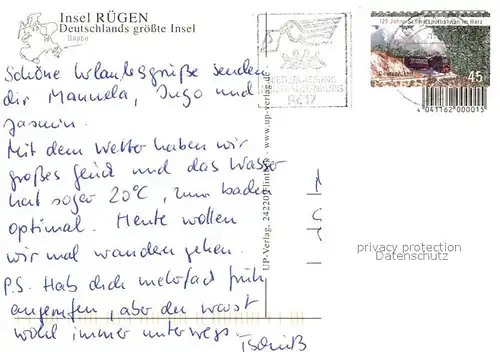 Insel RÜGEN
Deutschlands größte Insel
Baabe
Schöne Urlaubsgrüße senden
dir Manuela, Ingo und
Jasmin.
Mit dem Wetter haben wir
großes Glück und das Wasser
hat sogar 20°C, zum baden
optimal. Heute wollen
wir mal wandern gehen.
P.S. Hab dich mehrfach früh
angerufen, aber du warst
wohl immer unterwegs.
Tschüß
UP-Verlag, 24220 Flintbek - www.up-verlag.de
BRIEF 17
125 Jahre Schmalspurbahnen im Harz
Deutschland
45
4 041162 000015
privacy protection
Datenschutz